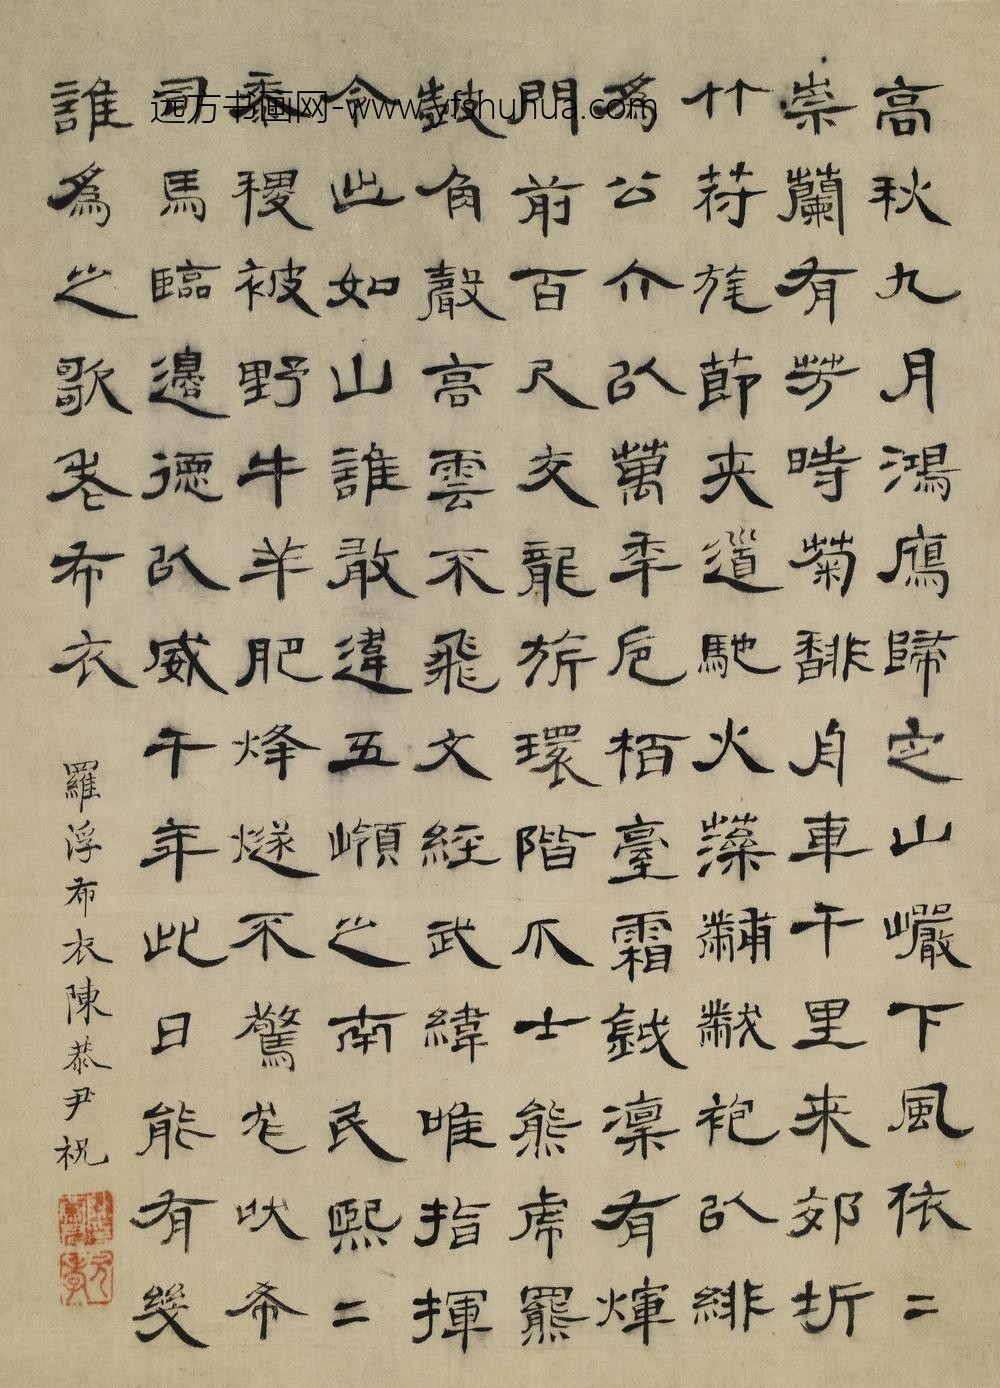 高秋九月鴻鴈歸定山巗下風依二
崇蘭有芳時菊馡舟車千里来郊圻
竹苻旄節夾道馳火藻黼黻袍以緋
為公介以萬年卮栢臺霜鉞凜有煇
門前百尺交龍旂環階爪士熊虎羆
鼓角聲高雲不飛文經武緯唯指揮
令出如山誰敢違五嶺之南民熙二
黍稷被野牛羊肥烽燧不驚尨吠希
司馬臨邊德以威千年此日能有幾
誰為之歌老布衣
羅浮布衣陳恭尹祝
远方书画网-www.yfshuhua.com